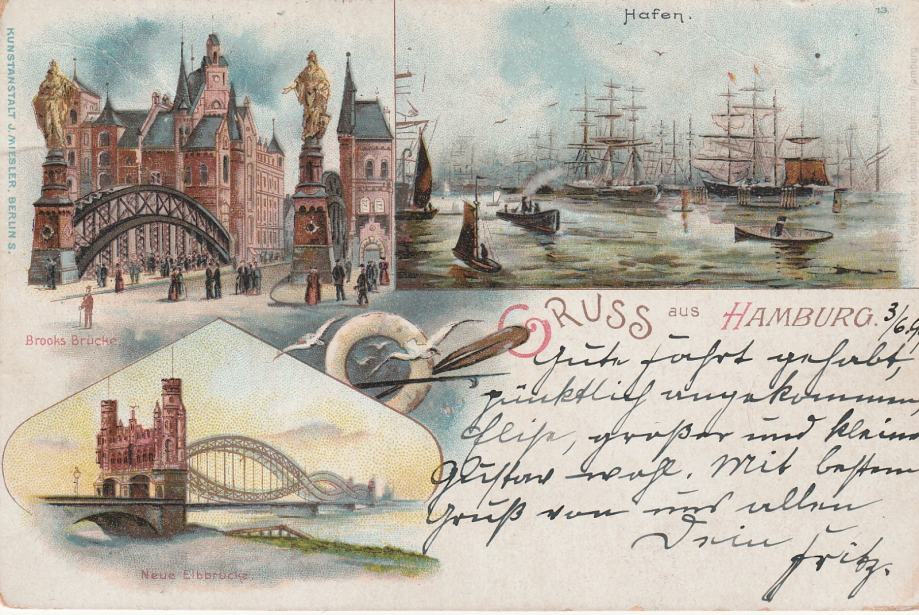 KUNSTANSTALT J. MIESLER, BERLIN S.
Hafen.
13.
Brooks Brücke.
GRUSS aus HAMBURG.
3/6.9
Gute Fahrt gehabt,
pünktlich angekommen,
Elise, großer und kleine
Gustav wohl. Mit bestem
Gruß von uns allen
Dein
Fritz.
Neue Elbbrücke.